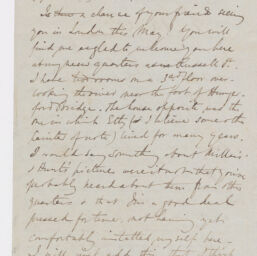 Is there a chance of your friends seeing
you in London this May? You will
find me angled to welcome you here
at my new quarters near Russell St.
I have two rooms on a 3rd floor over-
looking the river near the foot of Hunger-
ford Bridge. The house opposite was the
one in which Etty (& I believe some other
painters of note) lived for many years.
I would say something about Millais
& Hunt's pictures were it not that you've
probably heard about them from other
quarters & that I'm a good deal
pressed for time, not having yet
comfortably installed myself here.
I will just add this that I think